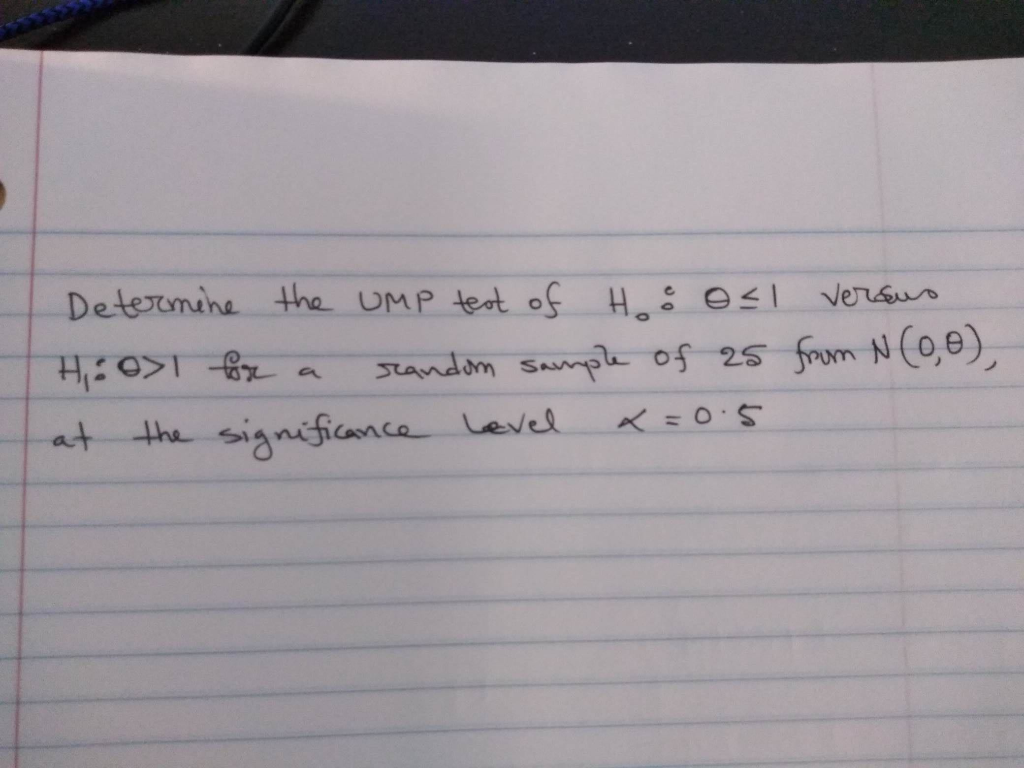 Determine the UMP test of H₀: θ≤1 versus
H₁: θ>1 for a random sample of 25 from N(0,θ),
at the significance level α = 0.5